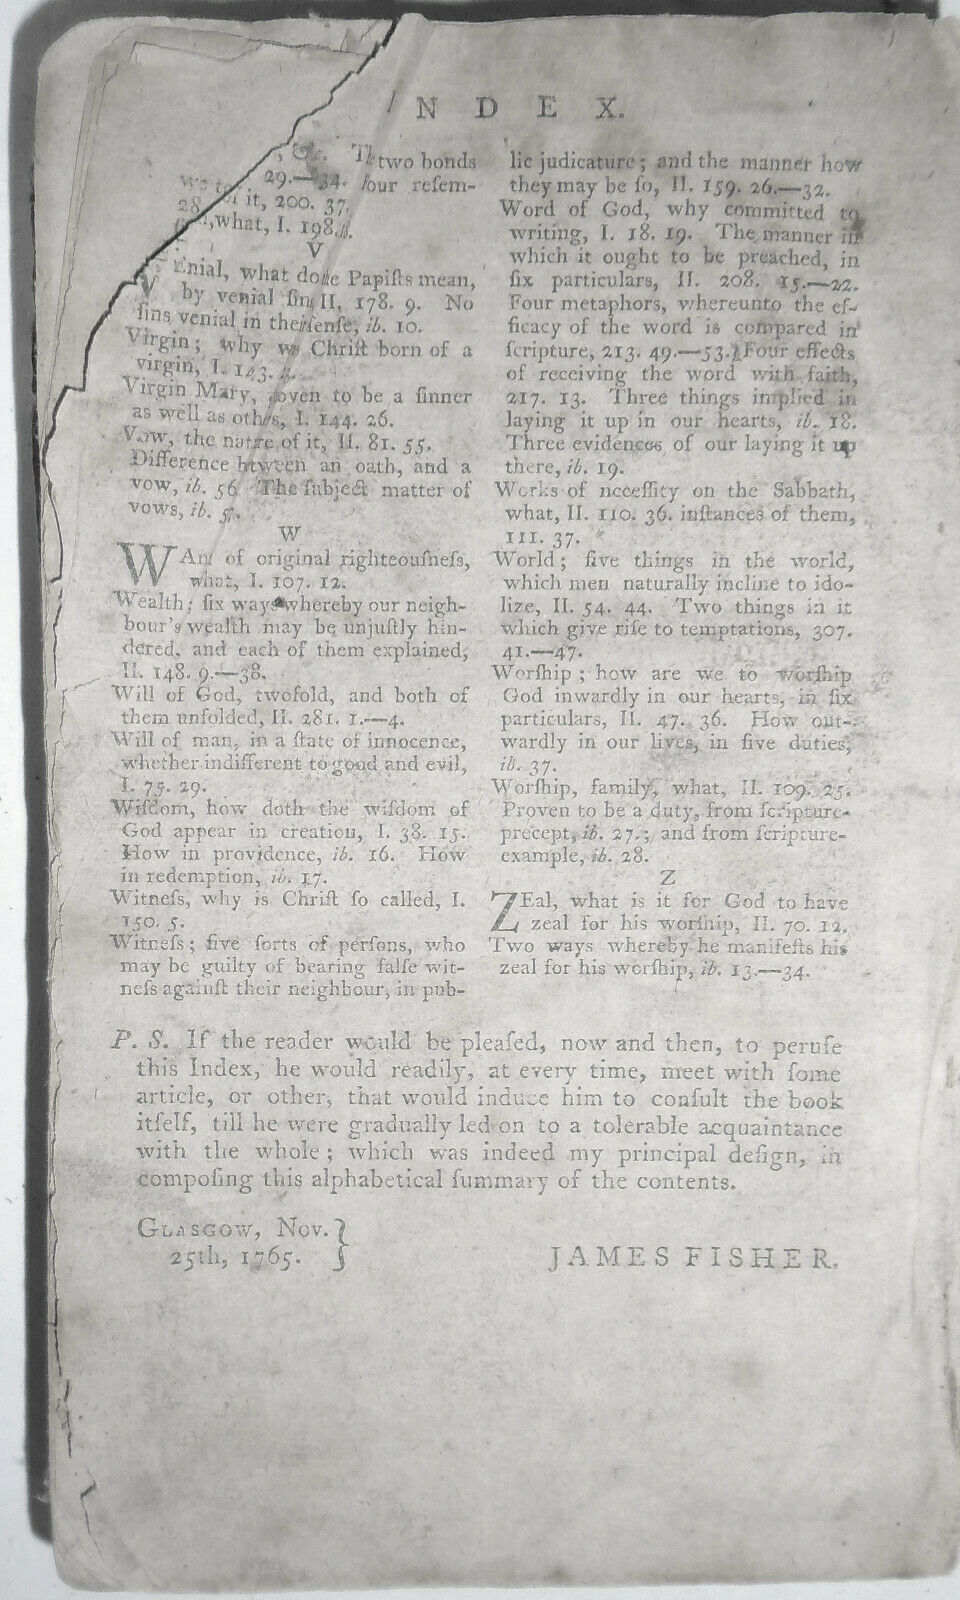 INDEX.
&c. two bonds
29.—34. four reſem-
of it, 200. 37.
what, I. 198.
V
VEnial, what do the Papiſts mean,
by venial ſin, II, 178. 9. No
ſins venial in their ſenſe, ib. 10.
Virgin; why was Chriſt born of a
virgin, I. 143.
Virgin Mary, proven to be a ſinner
as well as others, I. 144. 26.
Vow, the nature of it, II. 81. 55.
Difference between an oath, and a
vow, ib. 56 The ſubject matter of
vows, ib.
W
WAnt of original righteouſneſs,
what, I. 107. 12.
Wealth; ſix ways whereby our neigh-
bour's wealth may be unjuſtly hin-
dered, and each of them explained,
II. 148. 9.—38.
Will of God, twofold, and both of
them unfolded, II. 281. 1.—4.
Will of man, in a ſtate of innocence,
whether indifferent to good and evil,
I. 75. 29.
Wiſdom, how doth the wiſdom of
God appear in creation, I. 38. 15.
How in providence, ib. 16. How
in redemption, ib. 17.
Witneſs, why is Chriſt ſo called, I.
150. 5.
Witneſs; five ſorts of perſons, who
may be guilty of bearing falſe wit-
neſs againſt their neighbour, in pub-
lic judicature; and the manner how
they may be ſo, II. 159. 26.—32.
Word of God, why committed to
writing, I. 18. 19. The manner in
which it ought to be preached, in
ſix particulars, II. 208. 15.—22.
Four metaphors, whereunto the ef-
ficacy of the word is compared in
ſcripture, 213. 49.—53. Four effects
of receiving the word with faith,
217. 13. Three things implied in
laying it up in our hearts, ib. 18.
Three evidences of our laying it up
there, ib. 19.
Works of neceſſity on the Sabbath,
what, II. 110. 36. inſtances of them,
111. 37.
World; five things in the world,
which men naturally incline to ido-
lize, II. 54. 44. Two things in it
which give riſe to temptations, 307.
41.—47.
Worſhip; how are we to worſhip
God inwardly in our hearts, in ſix
particulars, II. 47. 36. How out-
wardly in our lives, in five duties,
ib. 37.
Worſhip, family, what, II. 109. 25.
Proven to be a duty, from ſcripture-
precept, ib. 27.; and from ſcripture-
example, ib. 28.
Z
ZEal, what is it for God to have
zeal for his worſhip, II. 70. 12.
Two ways whereby he manifeſts his
zeal for his worſhip, ib. 13.—34.
P. S. If the reader would be pleaſed, now and then, to peruſe
this Index, he would readily, at every time, meet with ſome
article, or other, that would induce him to conſult the book
itſelf, till he were gradually led on to a tolerable acquaintance
with the whole; which was indeed my principal deſign, in
compoſing this alphabetical ſummary of the contents.
GLASGOW, Nov. }
25th, 1765.
JAMES FISHER.